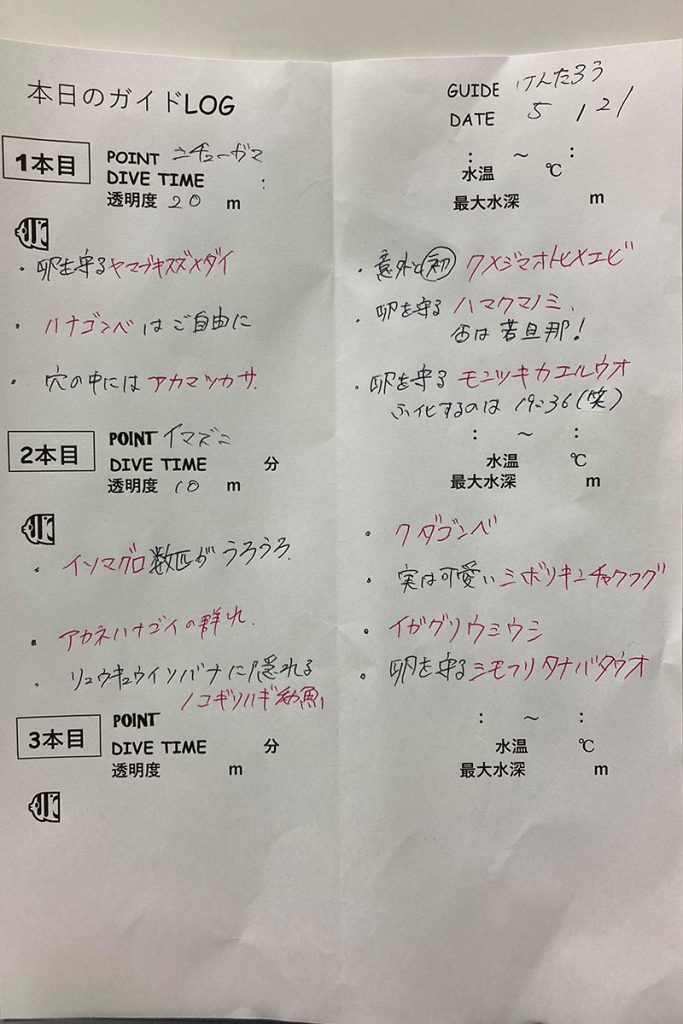 本日のガイドLOG
GUIDE けんたろう
DATE 5 / 21
1本目
POINT ニチューガマ
DIVE TIME :
透明度 20 m
: ～ :
水温 ℃
最大水深 m
・卵を守るヤマブキスズメダイ
・ハナゴンベはご自由に
・穴の中にはアカマツカサ.
・意外と初 クメジマオトヒメエビ
・卵を守る ハマクマノミ、
は若旦那!
・卵を守る モンツキカエルウオ
ふ化するのは 19:36(笑)
2本目
POINT イマズニ
DIVE TIME 分
透明度 10 m
: ～ :
水温 ℃
最大水深 m
・イソマグロ数匹がうろうろ.
・アカネハナゴイの群れ.
・リュウキュウイソバナに隠れる
ノコギリハギ幼魚
・クダゴンベ
・実は可愛いシボリキンチャクフグ
・イガグリウミウシ
・卵を守るシモフリタナバタウオ
3本目
POINT
DIVE TIME 分
透明度 m
: ～ :
水温 ℃
最大水深 m